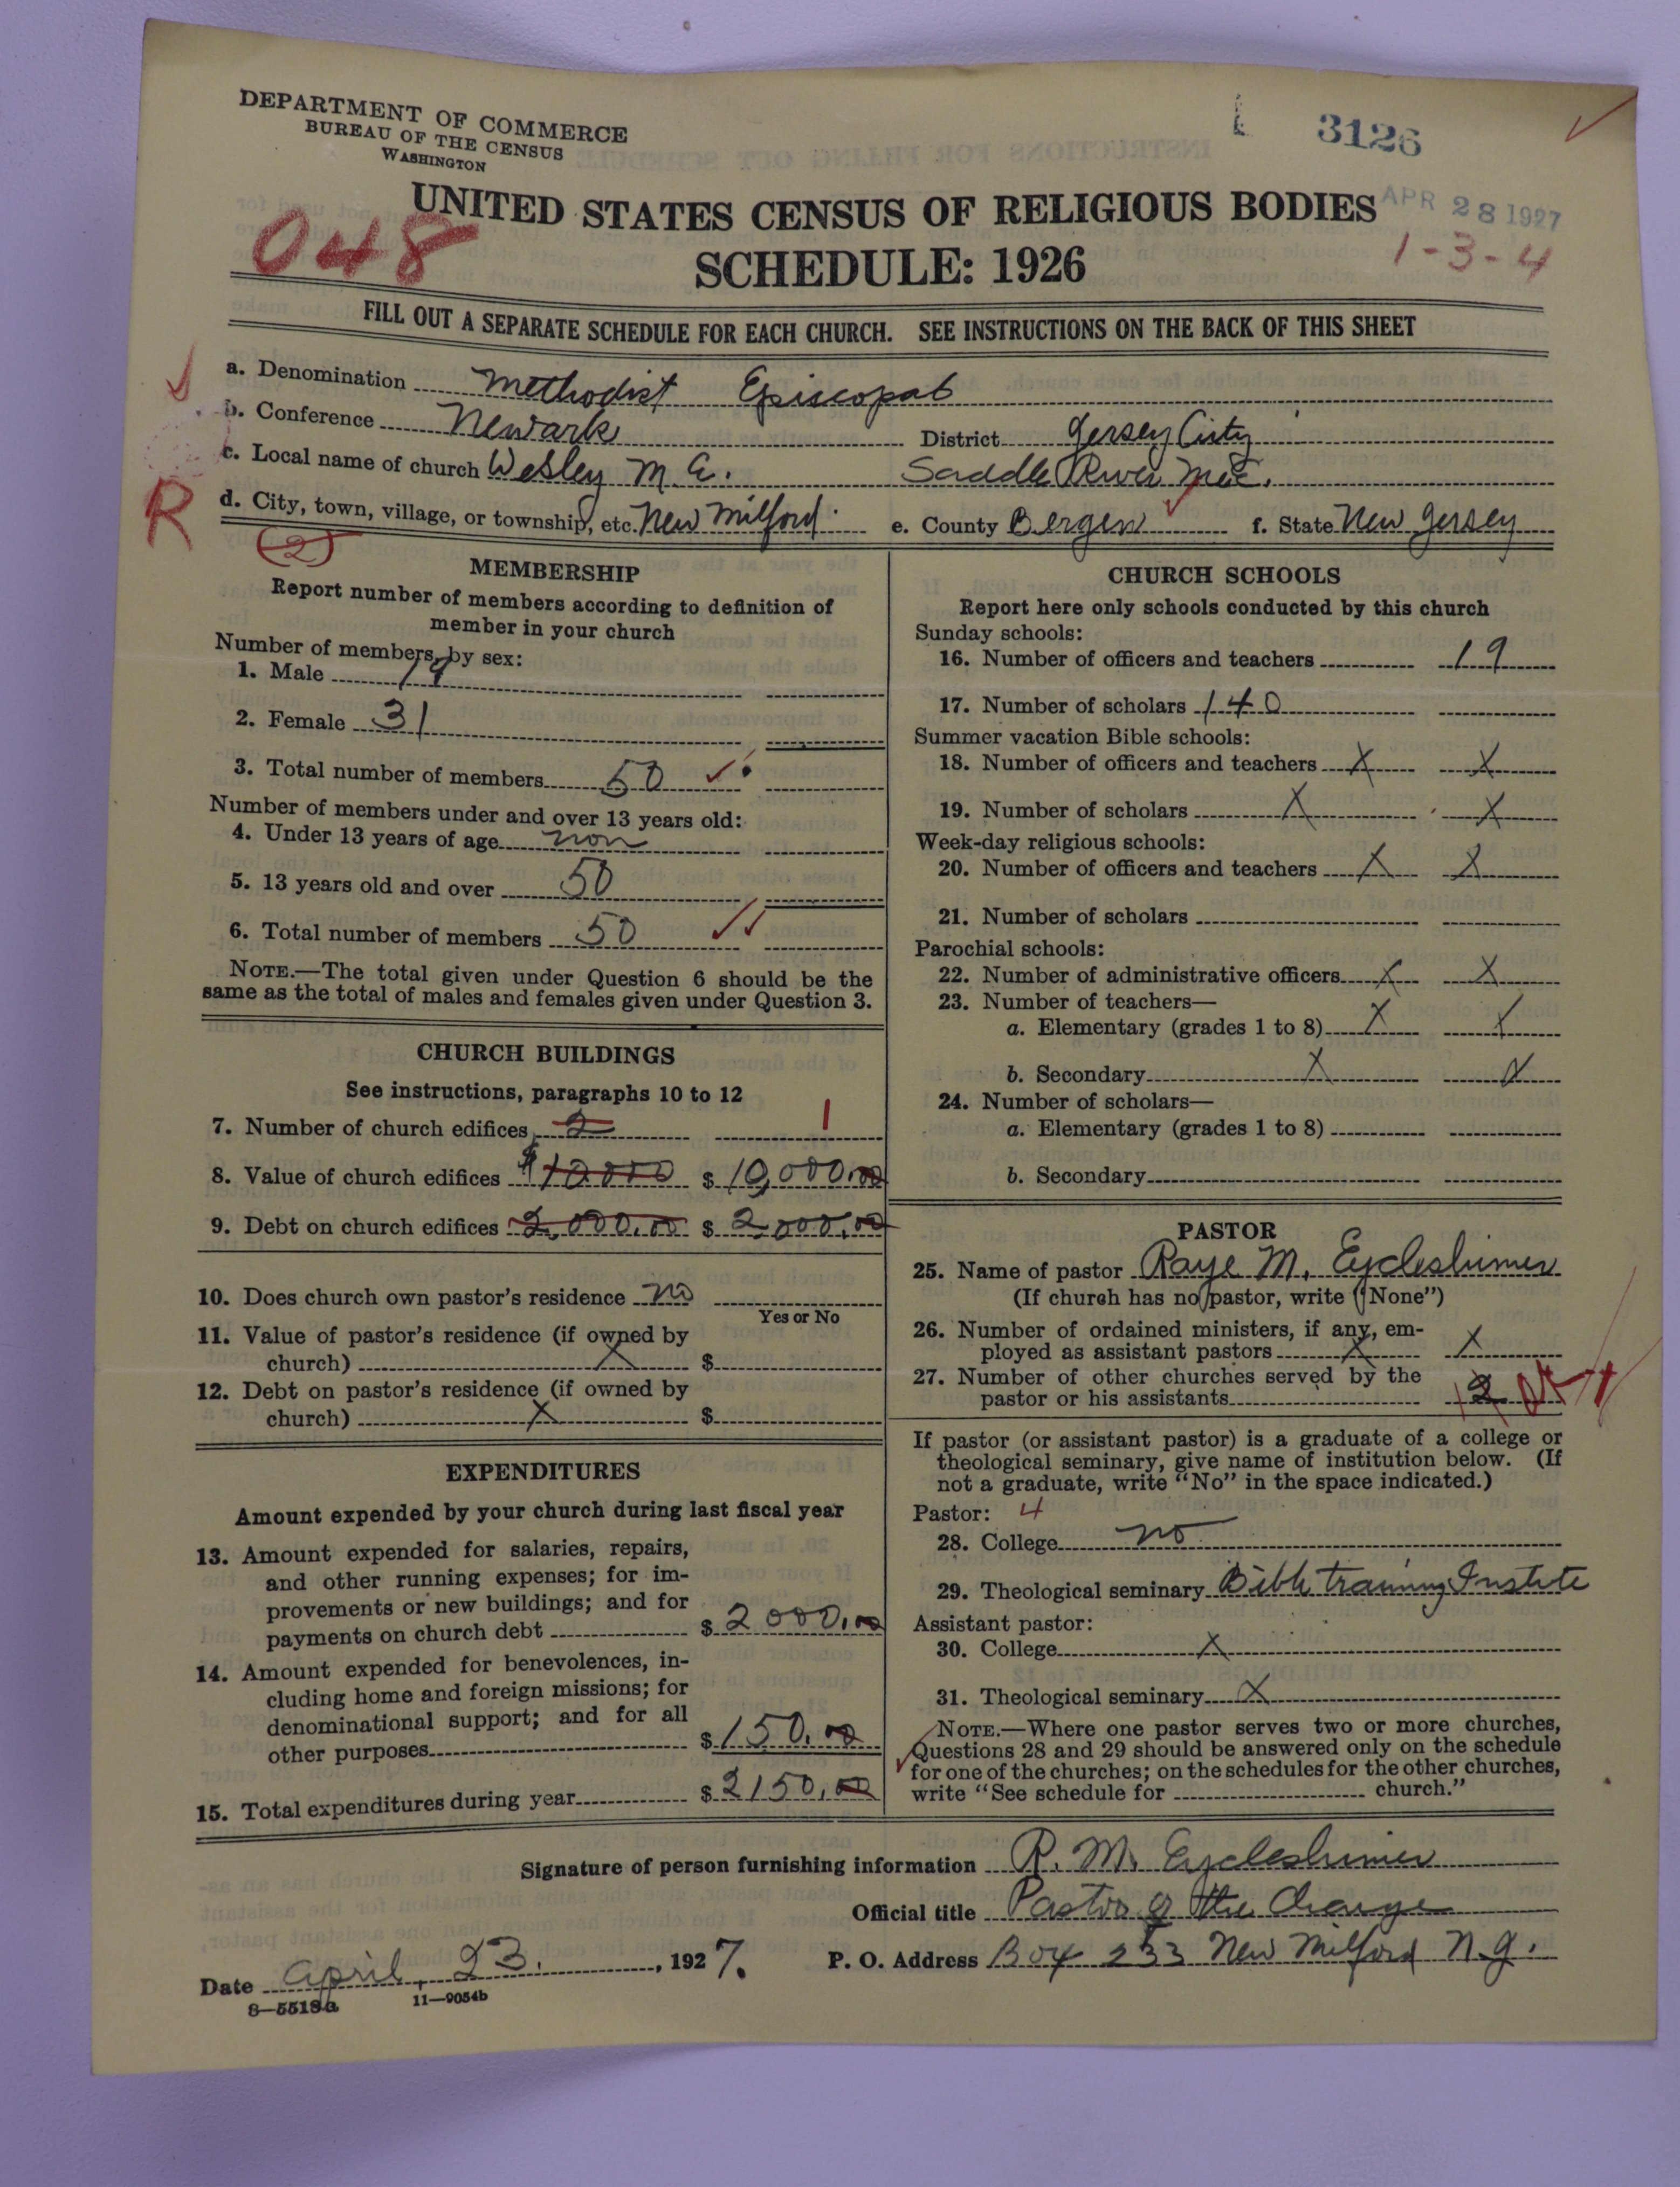 DEPARTMENT OF COMMERCE
BUREAU OF THE CENSUS
WASHINGTON
3126
UNITED STATES CENSUS OF RELIGIOUS BODIES
APR 28 1927
048
SCHEDULE: 1926
1-3-4
FILL OUT A SEPARATE SCHEDULE FOR EACH CHURCH. SEE INSTRUCTIONS ON THE BACK OF THIS SHEET
a. Denomination Methodist Episcopal
b. Conference Newark District Jersey City
c. Local name of church Wesley M E. Saddle River
R
d. City, town, village, or township, etc. New Milford e. County Bergen f. State New Jersey
(2)
MEMBERSHIP
Report number of members according to definition of
member in your church
Number of members, by sex:
1. Male 19
2. Female 31
3. Total number of members 50
Number of members under and over 13 years old:
4. Under 13 years of age non
5. 13 years old and over 50
6. Total number of members 50
NOTE.—The total given under Question 6 should be the
same as the total of males and females given under Question 3.
CHURCH BUILDINGS
See instructions, paragraphs 10 to 12
7. Number of church edifices 2 1
8. Value of church edifices $10000 $ 10,000.00
9. Debt on church edifices 2,000.00 $ 2,000.00
10. Does church own pastor's residence no
Yes or No
11. Value of pastor's residence (if owned by
church) X $
12. Debt on pastor's residence (if owned by
church) X $
EXPENDITURES
Amount expended by your church during last fiscal year
13. Amount expended for salaries, repairs,
and other running expenses; for im-
provements or new buildings; and for
payments on church debt $ 2000.00
14. Amount expended for benevolences, in-
cluding home and foreign missions; for
denominational support; and for all
other purposes $ 150.00
15. Total expenditures during year $ 2150.00
CHURCH SCHOOLS
Report here only schools conducted by this church
Sunday schools:
16. Number of officers and teachers 19
17. Number of scholars 140
Summer vacation Bible schools:
18. Number of officers and teachers X X
19. Number of scholars X X
Week-day religious schools:
20. Number of officers and teachers X X
21. Number of scholars
Parochial schools:
22. Number of administrative officers X X
23. Number of teachers—
a. Elementary (grades 1 to 8) X X
b. Secondary X X
24. Number of scholars—
a. Elementary (grades 1 to 8)
b. Secondary
PASTOR
25. Name of pastor Raye M. Eycleshimer
(If church has no pastor, write "None")
26. Number of ordained ministers, if any, em-
ployed as assistant pastors X X
27. Number of other churches served by the
pastor or his assistants 2
If pastor (or assistant pastor) is a graduate of a college or
theological seminary, give name of institution below. (If
not a graduate, write "No" in the space indicated.)
Pastor: 4
28. College no
29. Theological seminary Bible training Instute
Assistant pastor:
30. College X
31. Theological seminary X
NOTE.—Where one pastor serves two or more churches,
Questions 28 and 29 should be answered only on the schedule
for one of the churches; on the schedules for the other churches,
write "See schedule for church."
Signature of person furnishing information R. M. Eycleshimer
Official title Pastor of the Charge
Date April, 23, 1927. P. O. Address Box 233 New Milford N.J.
8—5518a 11—9054b